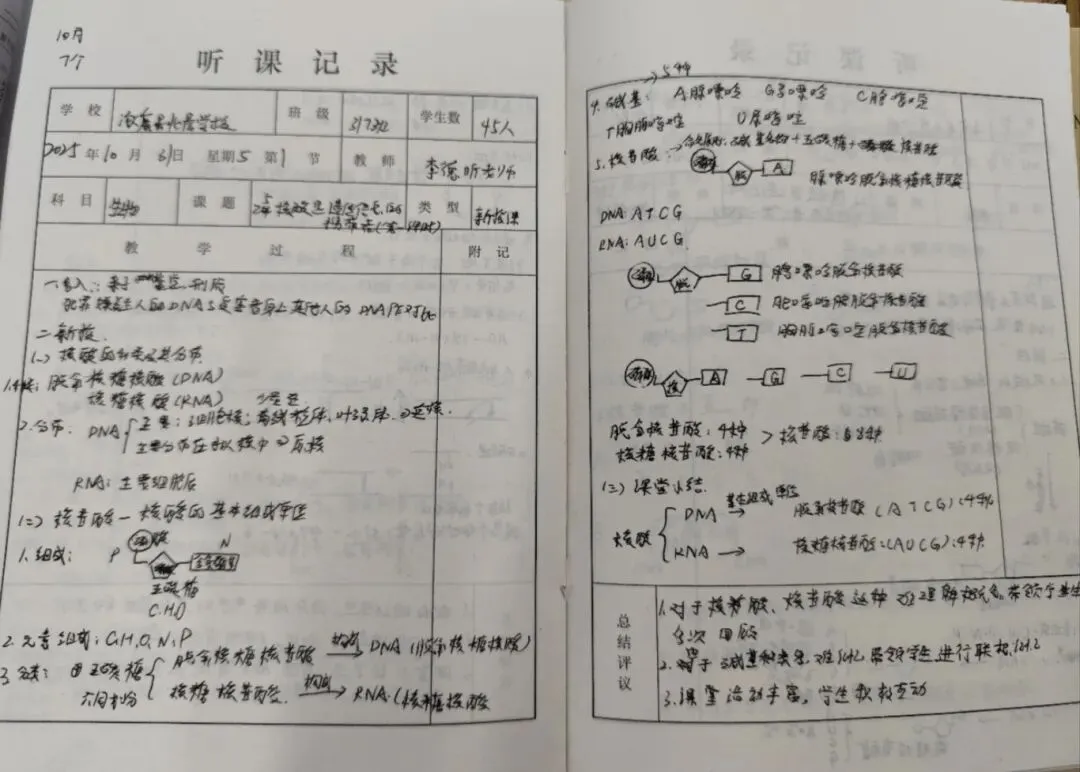 10月
7个
听课记录
学校 班级 317班 学生数 45人
2025年10月31日 星期5 第1节 教师 李德昕老师
科目 生物 课题 核酸是遗传信息的携带者(第一课时) 类型 新授课
教学过程 附记
一、导入:
DNA DNA
二、新授
(一) 核酸的种类及其分布
1.种类:脱氧核糖核酸(DNA)
核糖核酸(RNA)
2.分布 DNA 主要:细胞核;线粒体、叶绿体. ①真核.
主要分布在拟核中 ②原核
RNA:主要细胞质
(二) 核苷酸—核酸的基本组成单位
1.组成: P N
五碳糖
C.H.O
2.元素组成:C.H.O.N.P
3.分类: 由五碳糖 脱氧核糖核苷酸 构成 DNA(脱氧核糖核酸)
不同划分 核糖核苷酸 构成 RNA(核糖核酸
5种
4.碱基: A腺嘌呤 G鸟嘌呤 C胞嘧啶
T胸腺嘧啶 U尿嘧啶
5.核苷酸:
脱 A 腺嘌呤脱氧核糖核苷酸
DNA:ATCG
RNA:AUCG
脱 G 嘌呤脱氧核苷酸
C 嘧啶脱氧核苷酸
T 胸腺嘧啶脱氧核苷酸
核 A G C U
脱氧核苷酸:4种 > 核苷酸:8种
核糖核苷酸:4种
(三) 课堂小结
核酸 DNA 基本组成单位 脱氧核苷酸(ATCG):4种
RNA 核糖核苷酸:(AUCG):4种
总结评议
1.对于核苷酸、核苷酸这种难理解概念,带领学生
多次回顾
2.对于碱基种类,难记忆,带领学生进行联想记忆
3.课堂活动丰富,学生积极互动